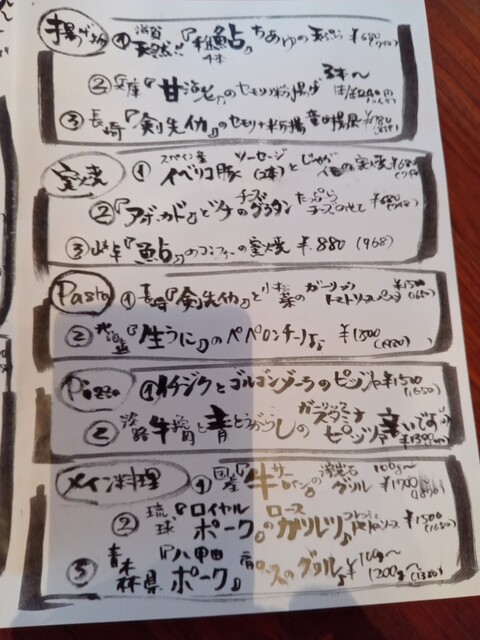 揚げ物 ① 滋賀 天然!!『稚鮎』4本 ちあゆの天ぷら ¥680
② 兵庫『甘海老』のセモリナ粉揚げ 3本〜
③ 長崎『剣先イカ』のセモリナ粉揚 ¥780
窯焼 ① スペイン産 イベリコ豚 ソーセージ(2本)とじゃが芋の窯焼 ¥680
②『アボカド』とツナのチーズグラタン たっぷらチーズのせて ¥680
③ 岐阜『鮎』のコンフィーの窯焼 ¥880 (968)
Pasta ① 長崎『剣先イカ』と小松菜のガーリックトマトソースパスタ ¥1500 (1650)
② 北海道『生うに』のペペロンチーノ♪ ¥1800 (1980)
Pizza ① イチジクとゴルゴンゾーラのピッツァ ¥1500 (1650)
② 淡路 牛 と青とうがらしのガーリックスタミナピッツァ 辛いです
メイン料理 ① 国産『牛サーロイン』の溶岩石グリル 100g〜 ¥1700 (1870)
② 琉球『ロイヤルポーク』ロースのカツレツ♪ トマトソース ¥1500 (1650)
③ 青森県『八甲田ポーク』肩ロースのグリル♪ 100g〜 ¥1200〜 (1320)